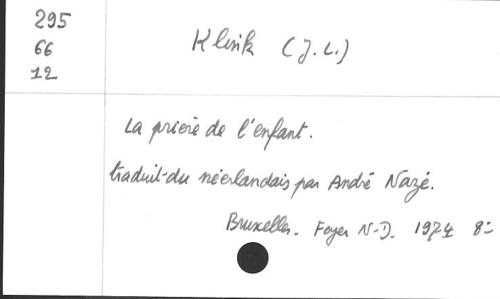 295
66
12
Klink (J. L.)
La prière de l'enfant.
traduit du néerlandais par André Nazé.
Bruxelles. Foyer N-D. 1974 8°